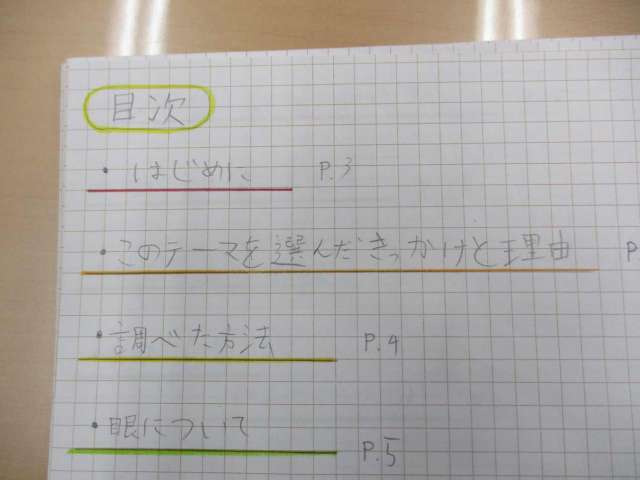 目次
・はじめに P.3
・このテーマを選んだきっかけと理由 P
・調べた方法 P.4
・眼について P.5